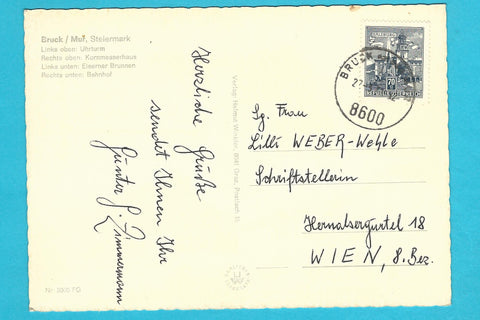 Bruck / Mur, Steiermark
Links oben: Uhrturm
Rechts oben: Kornmesserhaus
Links unten: Eiserner Brunnen
Rechts unten: Bahnhof
Herzliche Grüße
sendet Ihnen Ihr
Günter G. Zimmermann
Verlag Helmut
8600
REPUBLIK ÖSTERREICH
Sg. Frau
Lilli WEBER-Wehle
Schriftstellerin
Hernalsergürtel 18
WIEN, 8. Bez.